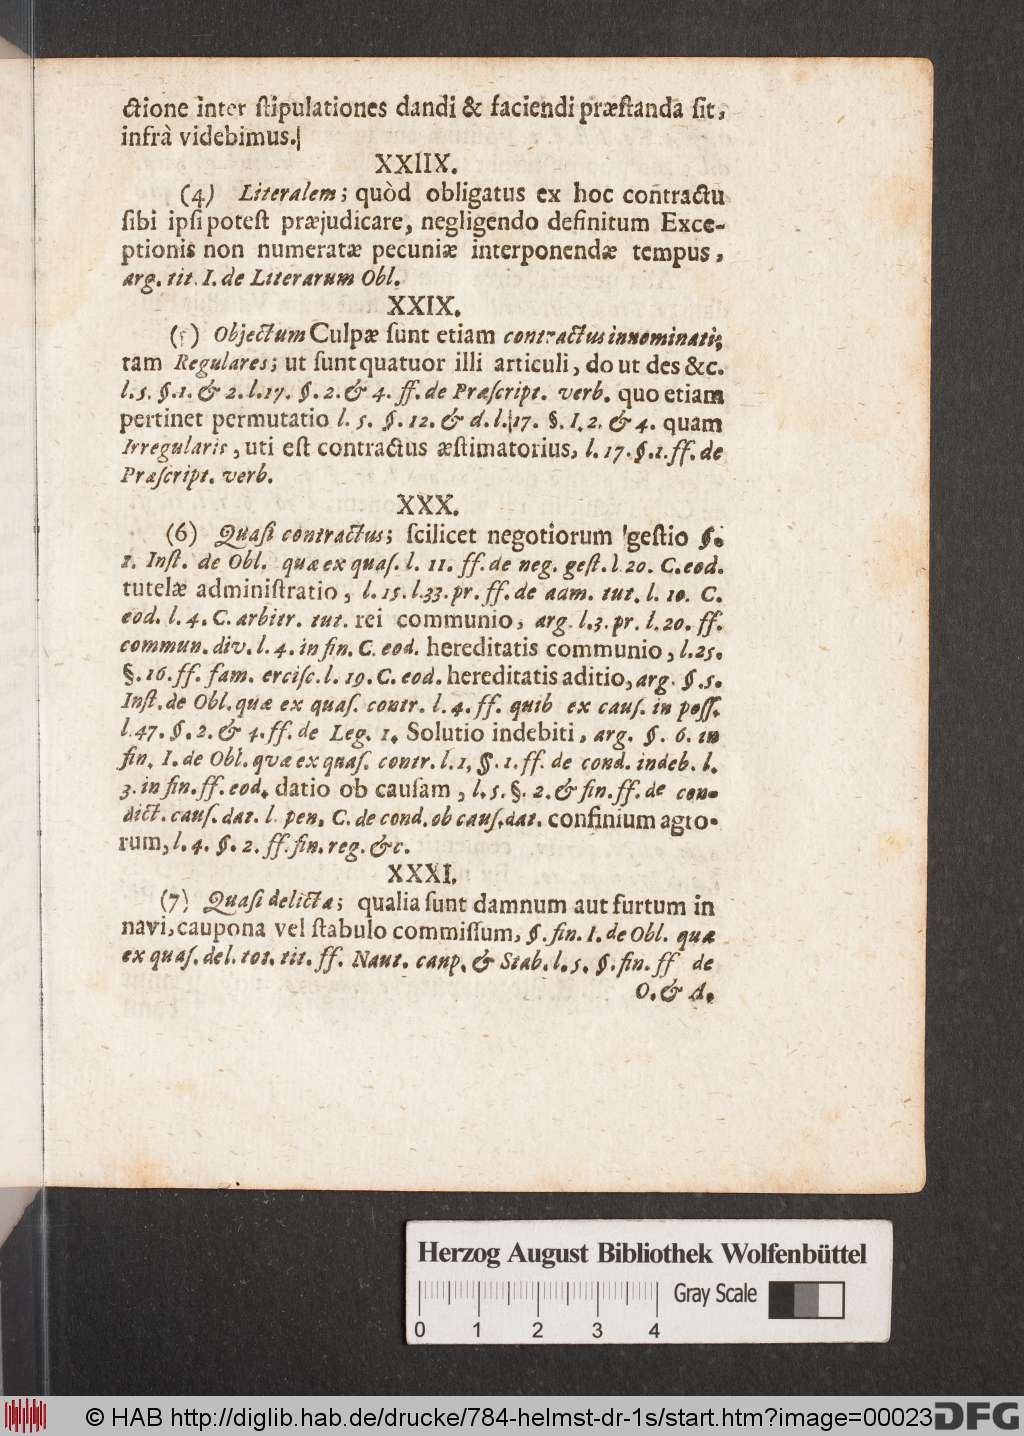 ctione inter ſtipulationes dandi & faciendi præſtanda ſit,
infrà videbimus.
XXIIX.
(4) Literalem; quòd obligatus ex hoc contractu
ſibi ipſi poteſt præjudicare, negligendo definitum Exce-
ptionis non numeratæ pecuniæ interponendæ tempus,
arg. tit. I. de Literarum Obl.
XXIX.
(5) Objectum Culpæ ſunt etiam contractus innominati;
tam Regulares; ut ſunt quatuor illi articuli, do ut des &c.
l. 5. §. 1. & 2. l. 17. §. 2. & 4. ff. de Præſcript. verb. quo etiam
pertinet permutatio l. 5. §. 12. & d. l. 17. §. I. 2. & 4. quam
Irregularis, uti eſt contractus æſtimatorius, l. 17. §. 1. ff. de
Præſcript. verb.
XXX.
(6) Quaſi contractus; ſcilicet negotiorum geſtio §.
1. Inſt. de Obl. quæ ex quaſ. l. 11. ff. de neg. geſt. l 20. C. eod.
tutelæ adminiſtratio, l. 15. l. 33. pr. ff. de aam. tut. l. 10. C.
eod. l. 4. C. arbitr. tut. rei communio, arg. l. 3. pr. l. 20. ff.
commun. div. l. 4. in fin. C. eod. hereditatis communio, l. 25.
§. 16. ff. fam. erciſc. l. 19. C. eod. hereditatis aditio, arg. §. 5.
Inſt. de Obl. quæ ex quaſ. contr. l. 4. ff. quib ex cauſ. in poſſ.
l. 47. §. 2. & 4. ff. de Leg. 1. Solutio indebiti, arg. §. 6. in
fin. I. de Obl. qvæ ex quaſ. contr. l. 1, §. 1. ff. de cond. indeb. l.
3. in fin. ff. eod. datio ob cauſam, l. 5. §. 2. & fin. ff. de con-
dict. cauſ. dat. l. pen. C. de cond. ob cauſ. dat. confinium agro-
rum, l. 4. §. 2. ff. fin. reg. &c.
XXXI.
(7) Quaſi delicta; qualia ſunt damnum aut furtum in
navi, caupona vel ſtabulo commiſſum, §. fin. I. de Obl. quæ
ex quaſ. del. tot. tit. ff. Naut. caup. & Stab. l. 5. §. fin. ff de
O. & A.
Herzog August Bibliothek Wolfenbüttel
Gray Scale
0 1 2 3 4
© HAB http://diglib.hab.de/drucke/784-helmst-dr-1s/start.htm?image=00023
DFG